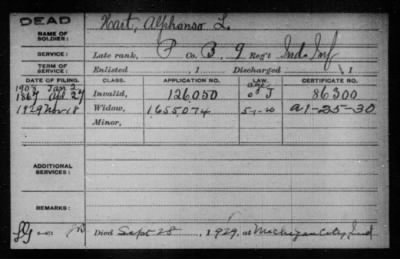 DEAD
NAME OF SOLDIER: Hart, Alphonso L.
SERVICE: Late rank, P Co. B, 9 Reg't Ind. Inf
TERM OF SERVICE: Enlisted , 1 Discharged , 1
DATE OF FILING. CLASS. APPLICATION NO. LAW. CERTIFICATE NO.
1907 Jan 2
1867 Apl 27 Invalid, 126,050 J 86300
1929 Nov 18 Widow, 1,655,074 5-1-20 a 1-25-30
Minor,
ADDITIONAL SERVICES:
REMARKS:
Died Sept 28, 1929, at Michigan City, Ind